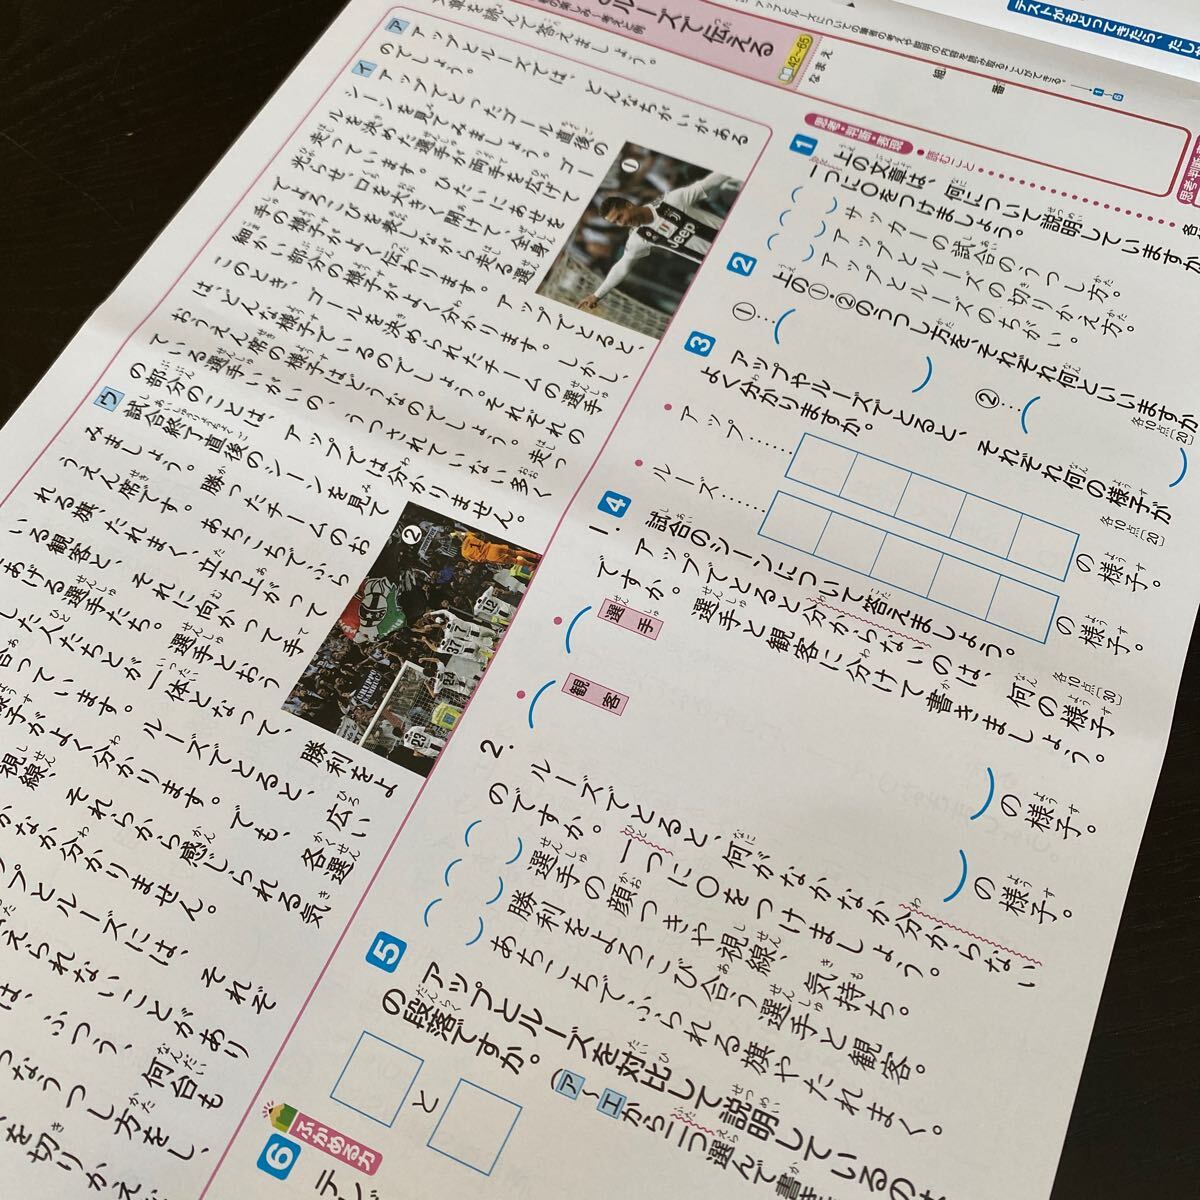 テストがもどってきたら、たし
ルーズで伝える
42〜65
なまえ
組
番
文章を読んで答えましょう。
ア
アップとルーズでは、どんなちがいがある
のでしょう。
イ
アップでとったゴール直後の
シーンを見てみましょう。ゴー
ルを決めた選手が両手を広げて
走っています。ひたいにあせを
光らせ、口を大きく開けて、全身
でよろこびを表しながら走る選
手の様子がよく伝わります。アップでとると、
細かい部分の様子がよく分かります。しかし、
このとき、ゴールを決められたチームの選手
は、どんな様子でいるのでしょう。それぞれの
おうえん席の様子はどうなのでしょう。走っ
ている選手いがいの、うつされていない多く
の部分のことは、アップでは分かりません。
①
Jeep
ウ
試合終了直後のシーンを見て
みましょう。勝ったチームのお
うえん席です。あちこちでふら
れる旗、たれまく、立ち上がって
いる観客と、それに向かって手
をあげる選手たち。選手とおう
した人たちとが一体となって、勝利をよ
合っています。ルーズでとると、広い
様子がよく分かります。でも、各選
視線、それらから感じられる気
かなか分かりません。
ップとルーズには、それぞ
えられないことがあり
は、ふつう、何台も
つなうつし方をし、
を切りかえ
②
12
37
24
23
思考・判断・表現
読むこと
1
上の文章は、何について説明していますか
一つに○をつけましょう。
サッカーの試合のうつし方。
アップとルーズの切りかえ方。
アップとルーズのちがい。
2
上の①・②のうつし方を、それぞれ何といいますか
各10点[20]
①…（　）
②…（　）
3
アップやルーズでとると、それぞれ何の様子が
よく分かりますか。
各10点[20]
アップ……の様子。
ルーズ……の様子。
4
試合のシーンについて答えましょう。
各10点[30]
1.
アップでとると分からないのは、何の様子
ですか。選手と観客に分けて書きましょう。
選手（　）の様子。
観客（　）の様子。
2.
ルーズでとると、何がなかなか分からない
のですか。一つに○をつけましょう。
（　）選手の顔つきや視線、気持ち。
（　）勝利をよろこび合う選手と観客。
（　）あちこちでふられる旗やたれまく。
5
アップとルーズを対比して説明しているの
の段落ですか。（ア〜エから二つ選んで書
と
ふかめる力
6
テレビ